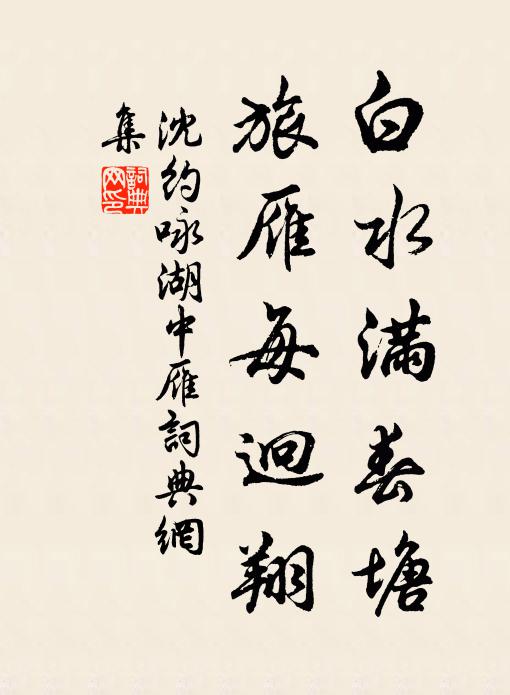 白水滿春塘
旅雁每迴翔
沈約咏湖中雁詞典網
集
詞典網印